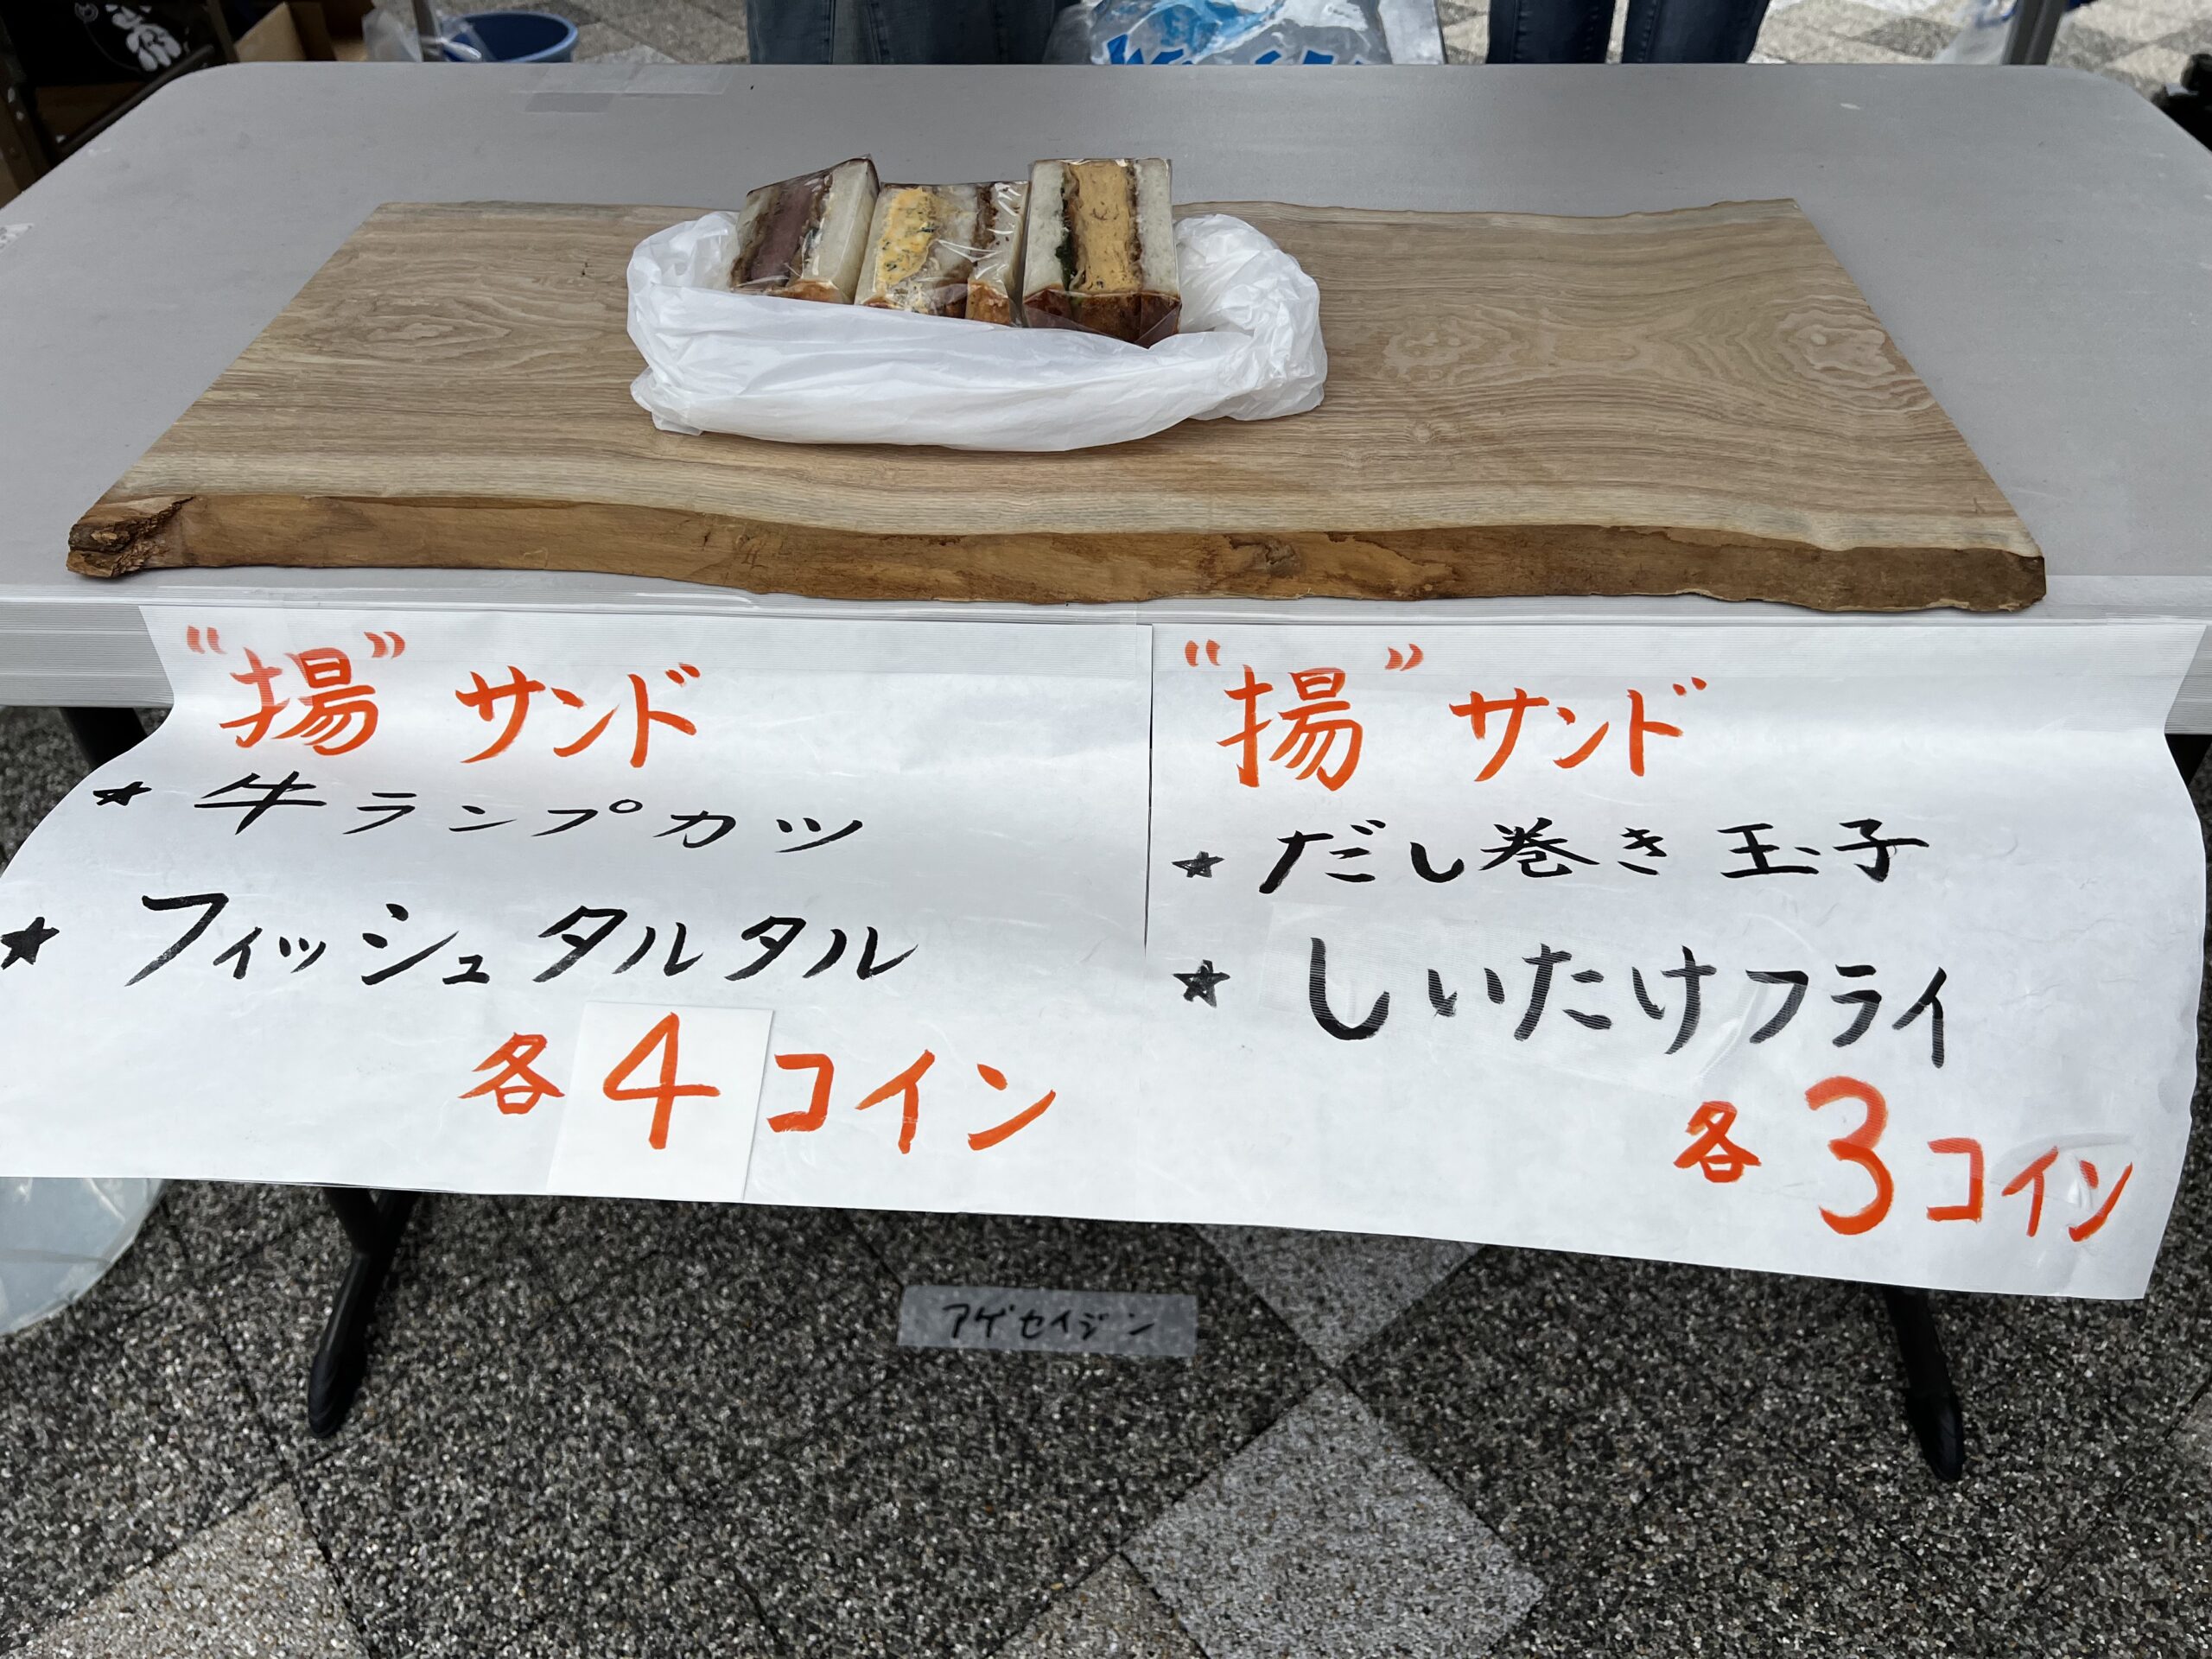 “揚” サンド
★ 牛ランプカツ
★ フィッシュタルタル
各4コイン
“揚” サンド
★ だし巻き玉子
★ しいたけフライ
各3コイン
アゲセイジン